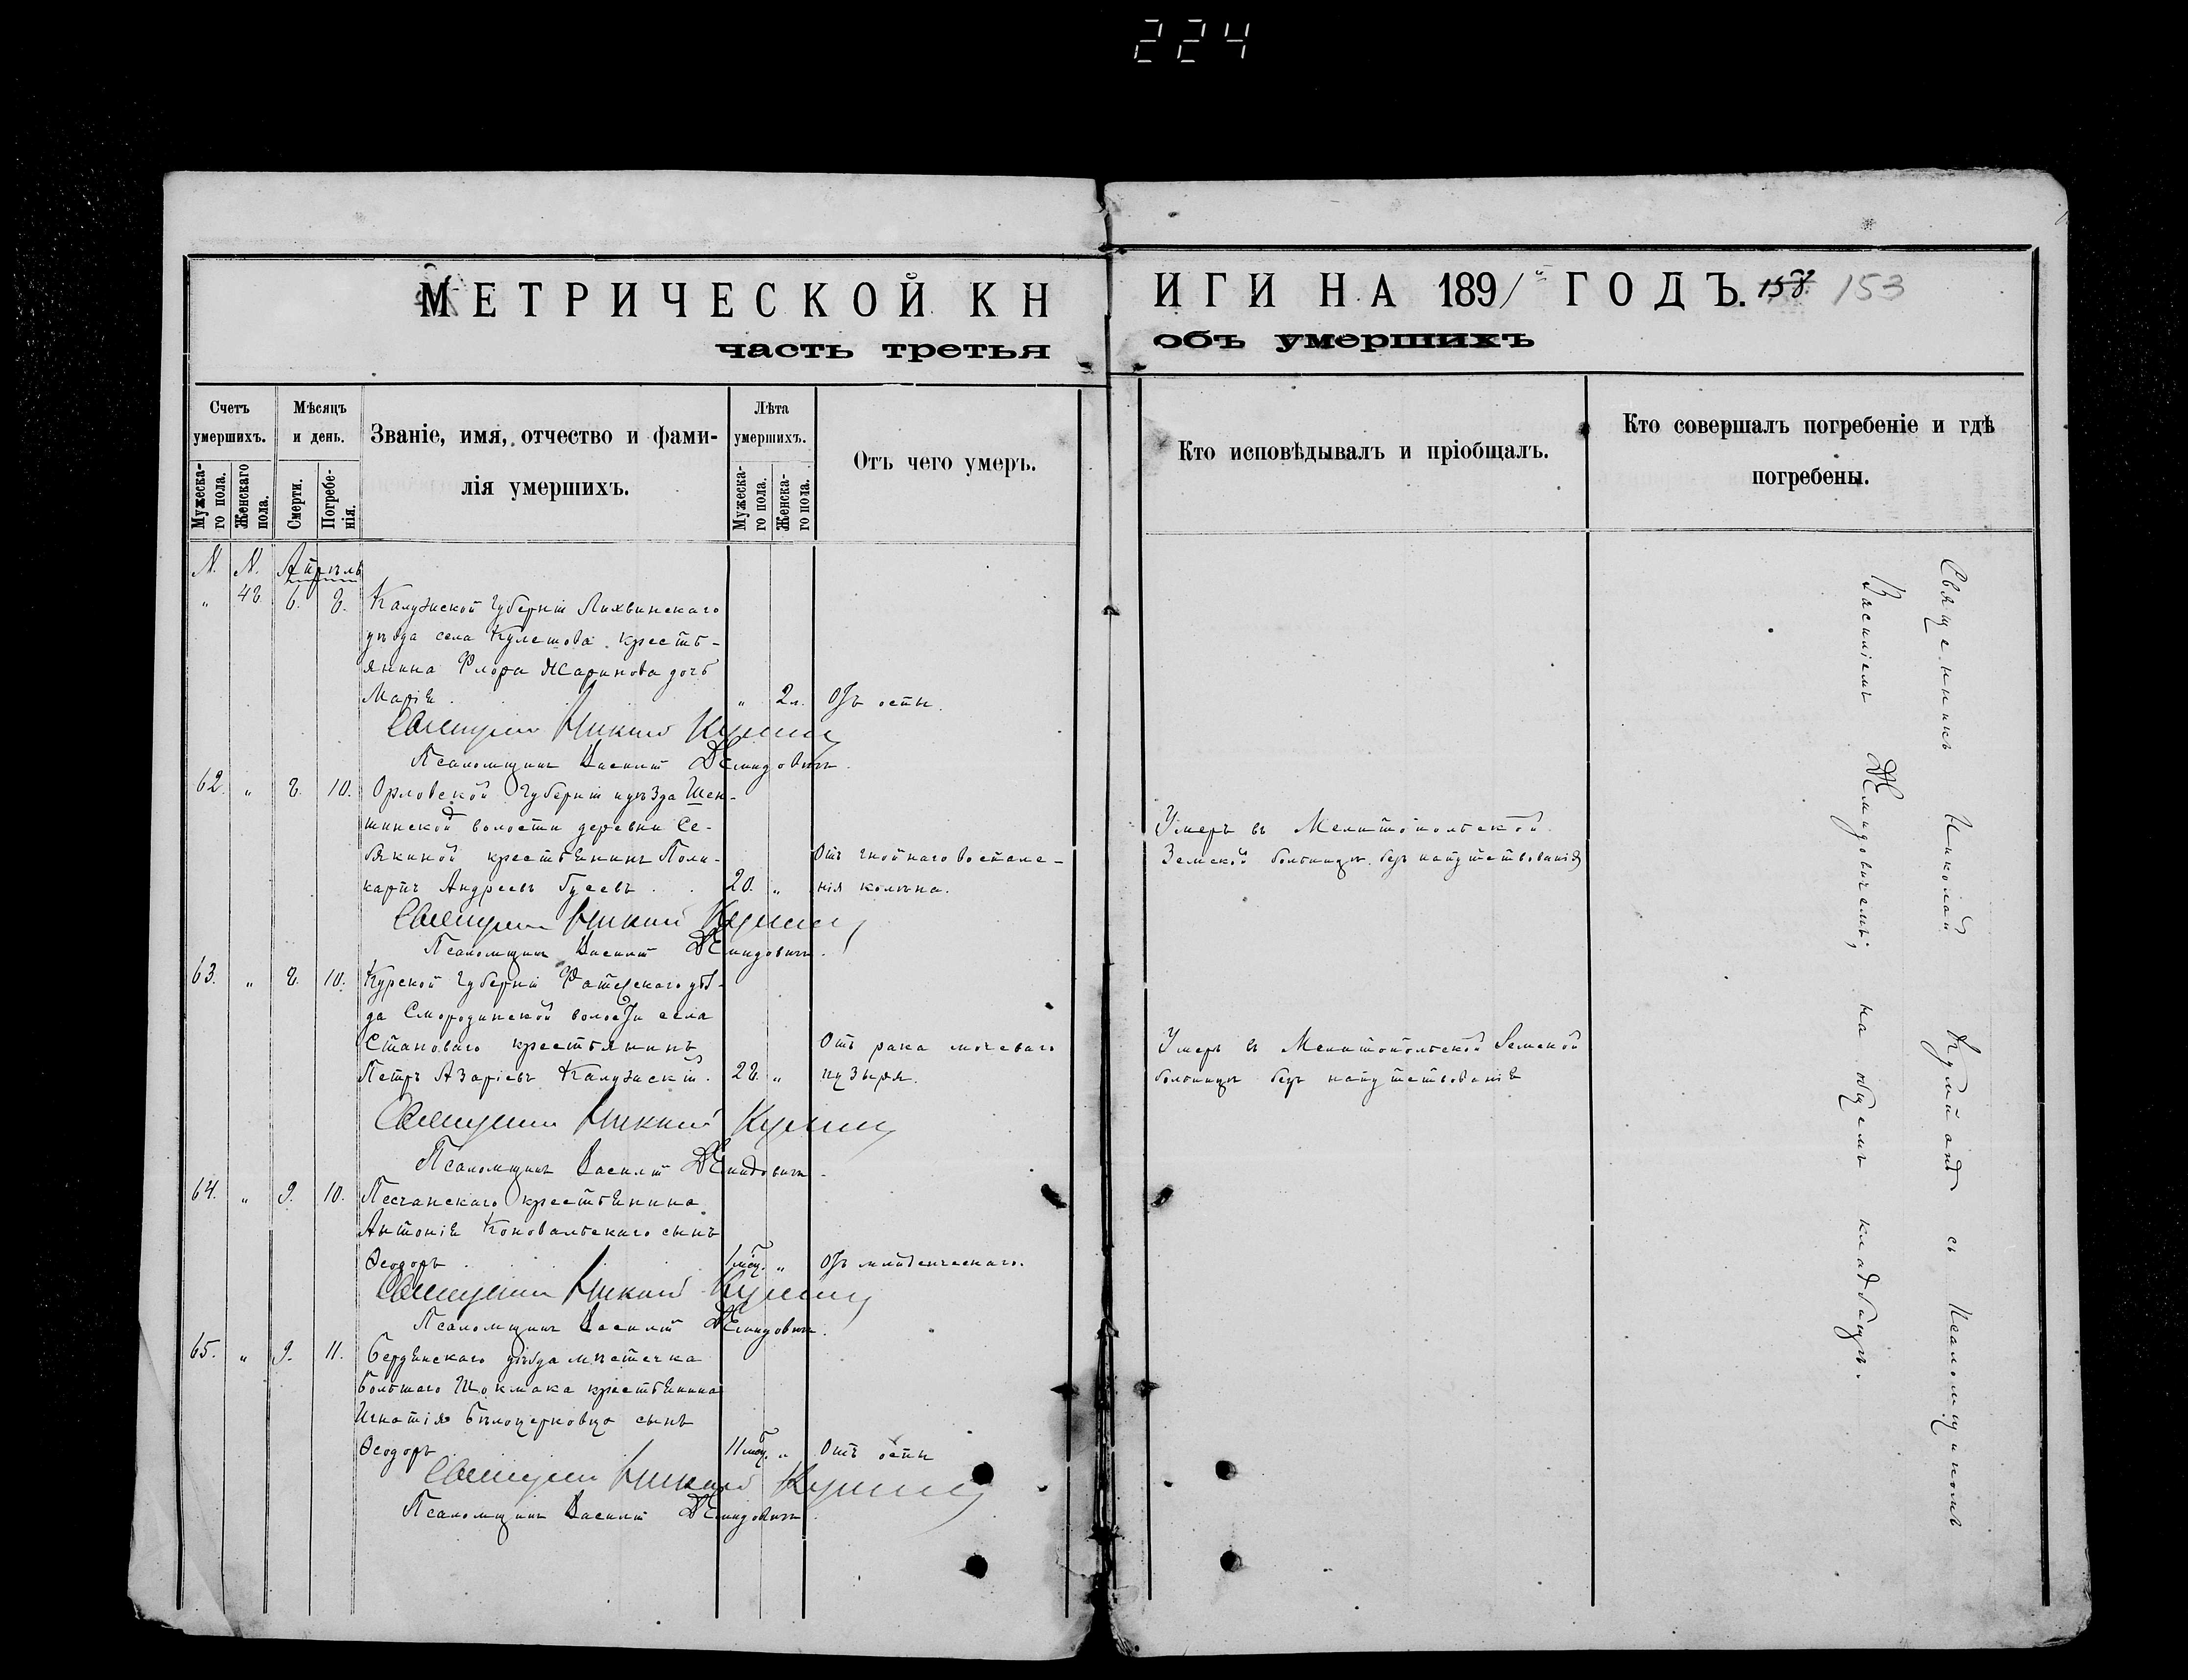 224
МЕТРИЧЕСКОЙ КНИГИ НА 1891й ГОДЪ. 158. 153
часть третья объ умершихъ
Счетъ умершихъ.
Мужескаго пола.
Женскаго пола.
Мѣсяцъ и день.
Смерти.
Погребенія.
Званіе, имя, отчество и фамилія умершихъ.
Лѣта умершихъ.
Мужескаго пола.
Женскаго пола.
Отъ чего умеръ.
Кто исповѣдывалъ и пріобщалъ.
Кто совершалъ погребеніе и гдѣ погребены.
N. N. Апрѣль
" 48 6. 8. Калужской Губерніи Лихвинскаго
уѣзда села Кулешова крестъ-
янина Флора Жаринова дочь
Марія " 2 л. Отъ оспы.
Священникъ Николай
Псаломщикъ Василій Демидовичъ.
62. " 8. 10. Орловской Губерніи и уѣзда Шен-
шинской волости деревни Се-
бякиной крестьянинъ Поли- Отъ гнойнаго воспале-
карпъ Андреевъ Гусевъ 20. " нія колѣна.
Умеръ въ Мелитопольской
Земской больницѣ безъ напутствованія
Священникъ Николай
Псаломщикъ Василій Демидовичъ.
63. " 8. 10. Курской Губерніи Фатежскаго уѣз-
да Смородинской волости села
Становаго крестьянинъ Отъ рака мочеваго
Петръ Азаріевъ Калужскій. 28. " пузыря.
Умеръ въ Мелитопольской Земской
больницѣ безъ напутствованія
Священникъ Николай
Псаломщикъ Василій Демидовичъ
64. " 9. 10. Песчанскаго крестьянина
Антонія Коновальскаго сынъ
Ѳеодоръ 1 мѣц. " Отъ младенческаго.
Священникъ Николай
Псаломщикъ Василій Демидовичъ.
65. " 9. 11. Бердянскаго уѣзда мѣстечка
Большаго Токмака крестьянина
Игнатія Бѣлоцерковца сынъ
Ѳеодоръ 11 мѣц. " Отъ оспы
Священникъ Николай
Псаломщикъ Василій Демидовичъ
Священникъ Николай съ Псаломщикомъ
Василіемъ Демидовичемъ, на общемъ кладбищѣ.